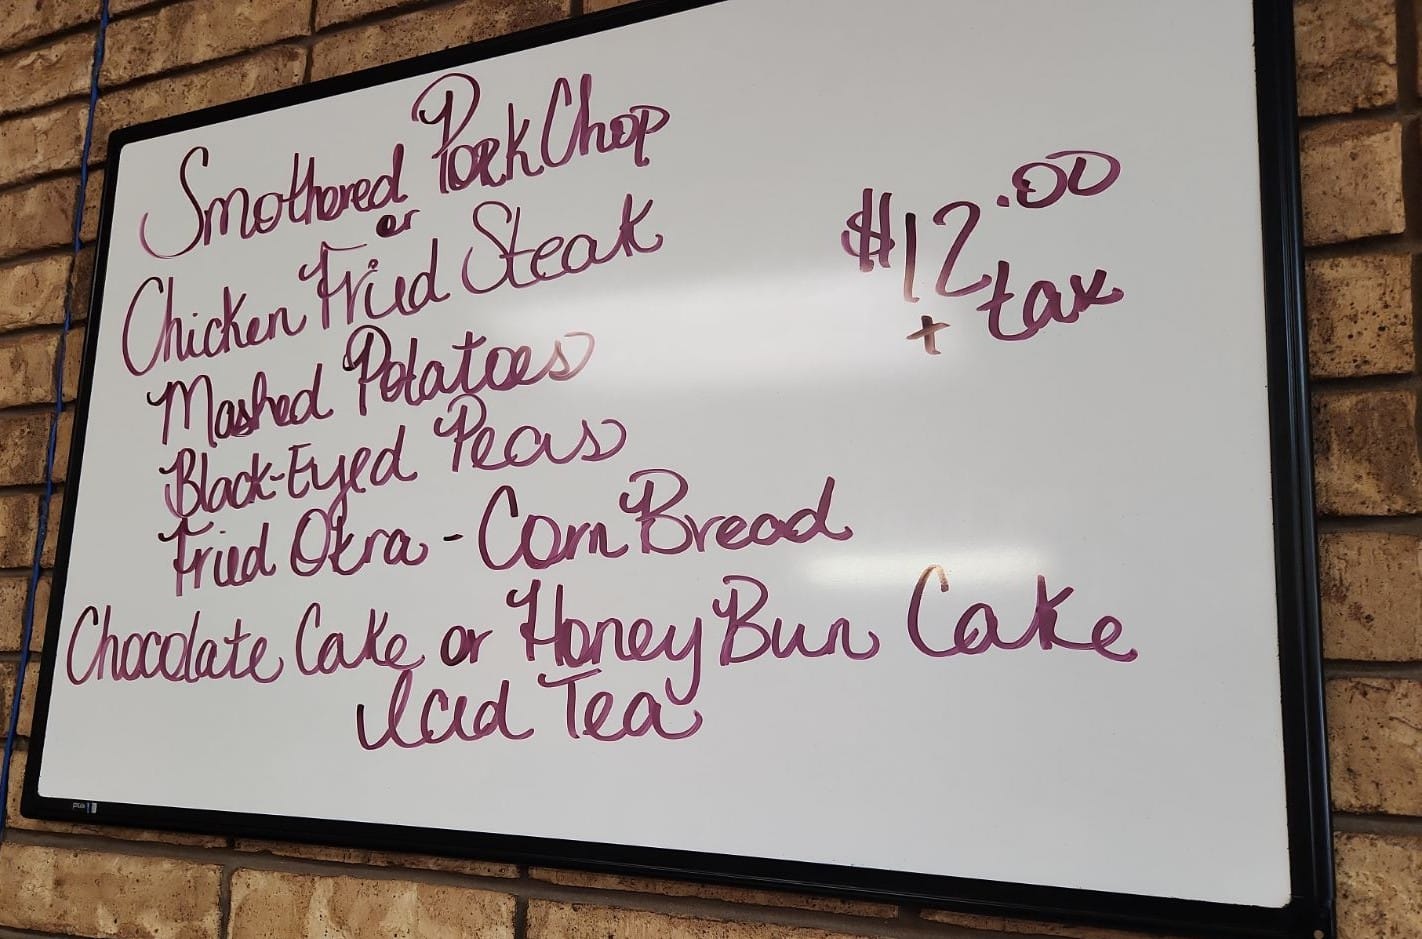 Smothered Pork Chop
or
Chicken Fried Steak
Mashed Potatoes
Black-Eyed Peas
Fried Okra - Corn Bread
Chocolate Cake or Honey Bun Cake
Iced Tea
$12.00
+ tax